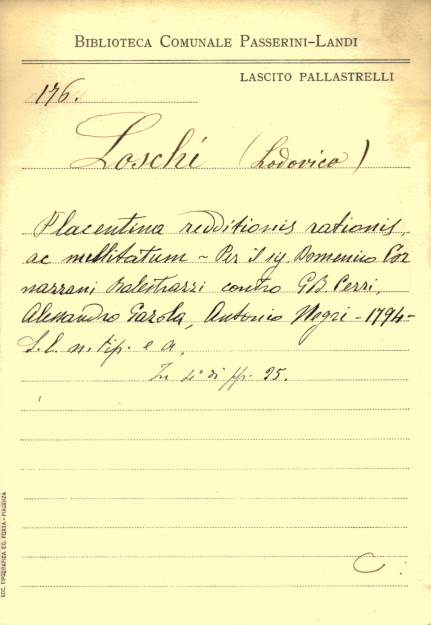 BIBLIOTECA COMUNALE PASSERINI-LANDI
LASCITO PALLASTRELLI
176.
Loschi (Lodovico)
Placentina redditionis rationis,
ac nullitatum - Per il sig Domenico Cor
nazzani Balestrazzi contro GB Perri,
Alessandro Gazola, Antonio Negri - 1794 -
S. l. n. tip. e a,
In 4° di pp. 25.
C.
SOC. TIPOGRAFICA ED. PORTA - PIACENZA